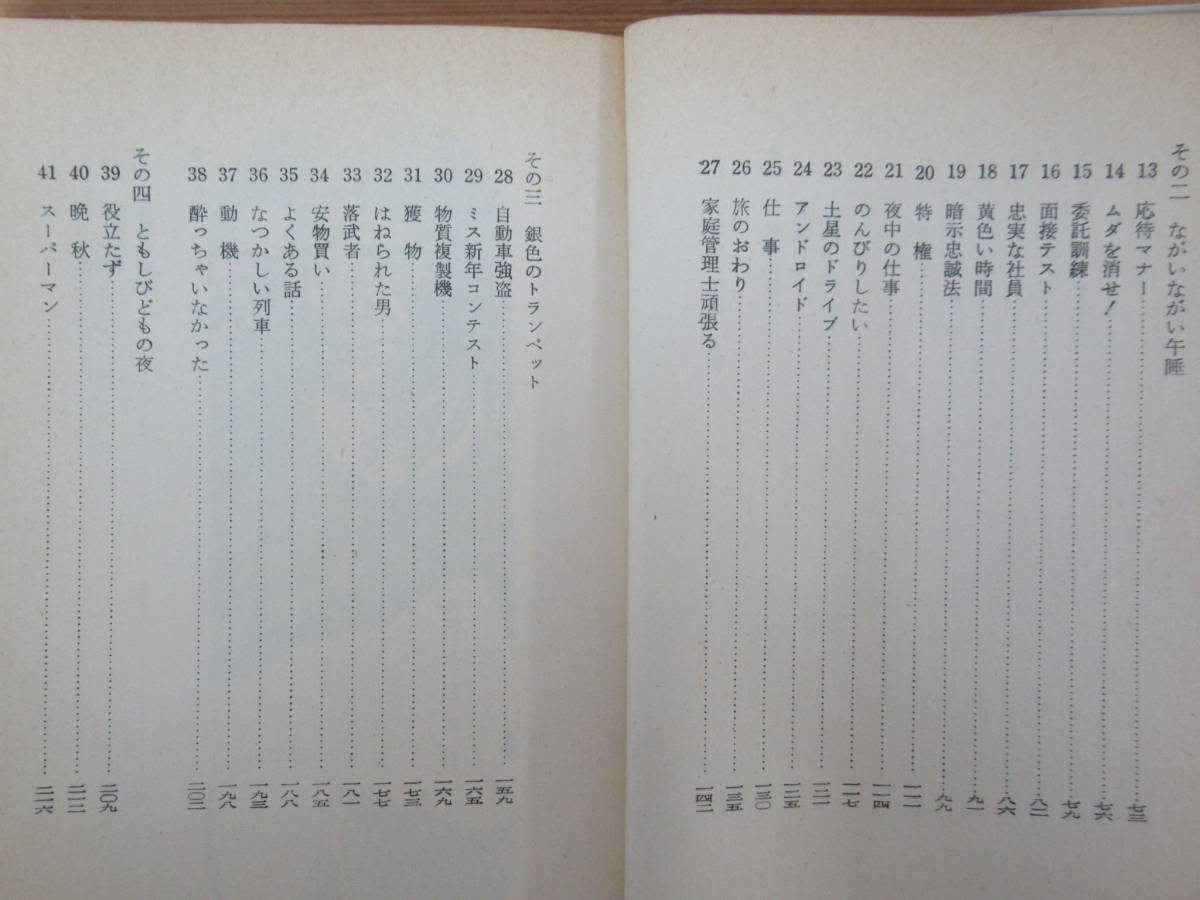 その二　ながいながい午睡
13　応待マナー……七三
14　ムダを消せ！……七六
15　委託訓練……七九
16　面接テスト……八二
17　忠実な社員……八六
18　黄色い時間……九一
19　暗示忠誠法……九九
20　特　権……一一一
21　夜中の仕事……一一四
22　のんびりしたい……一一七
23　土星のドライブ……一二一
24　アンドロイド……一二五
25　仕　事……一三〇
26　旅のおわり……一三五
27　家庭管理士頑張る……一四二
その三　銀色のトランペット
28　自動車強盗……一五九
29　ミス新年コンテスト……一六五
30　物質複製機……一六九
31　獲　物……一七三
32　はねられた男……一七七
33　落武者……一八一
34　安物買い……一八五
35　よくある話……一八八
36　なつかしい列車……一九三
37　動　機……一九八
38　酔っちゃいなかった……二〇二
その四　ともしびどもの夜
39　役立たず……二〇九
40　晩　秋……二一二
41　スーパーマン……二一六